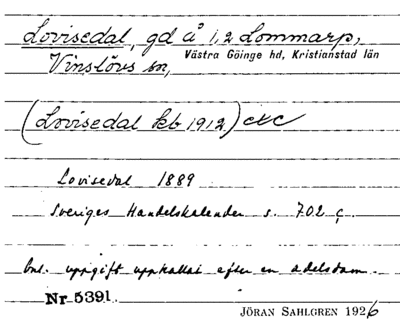 Lovisedal, gd å 1,2 Lommarp,
Vinslövs sn, Västra Göinge hd, Kristianstad län
(Lovisedal kb 1912) etc
Lovisedal 1889
Sveriges Handelskalender s. 702 ç.
Enl. uppgift uppkallat efter en adelsdam.
Nr 5391.
JÖRAN SAHLGREN 1926